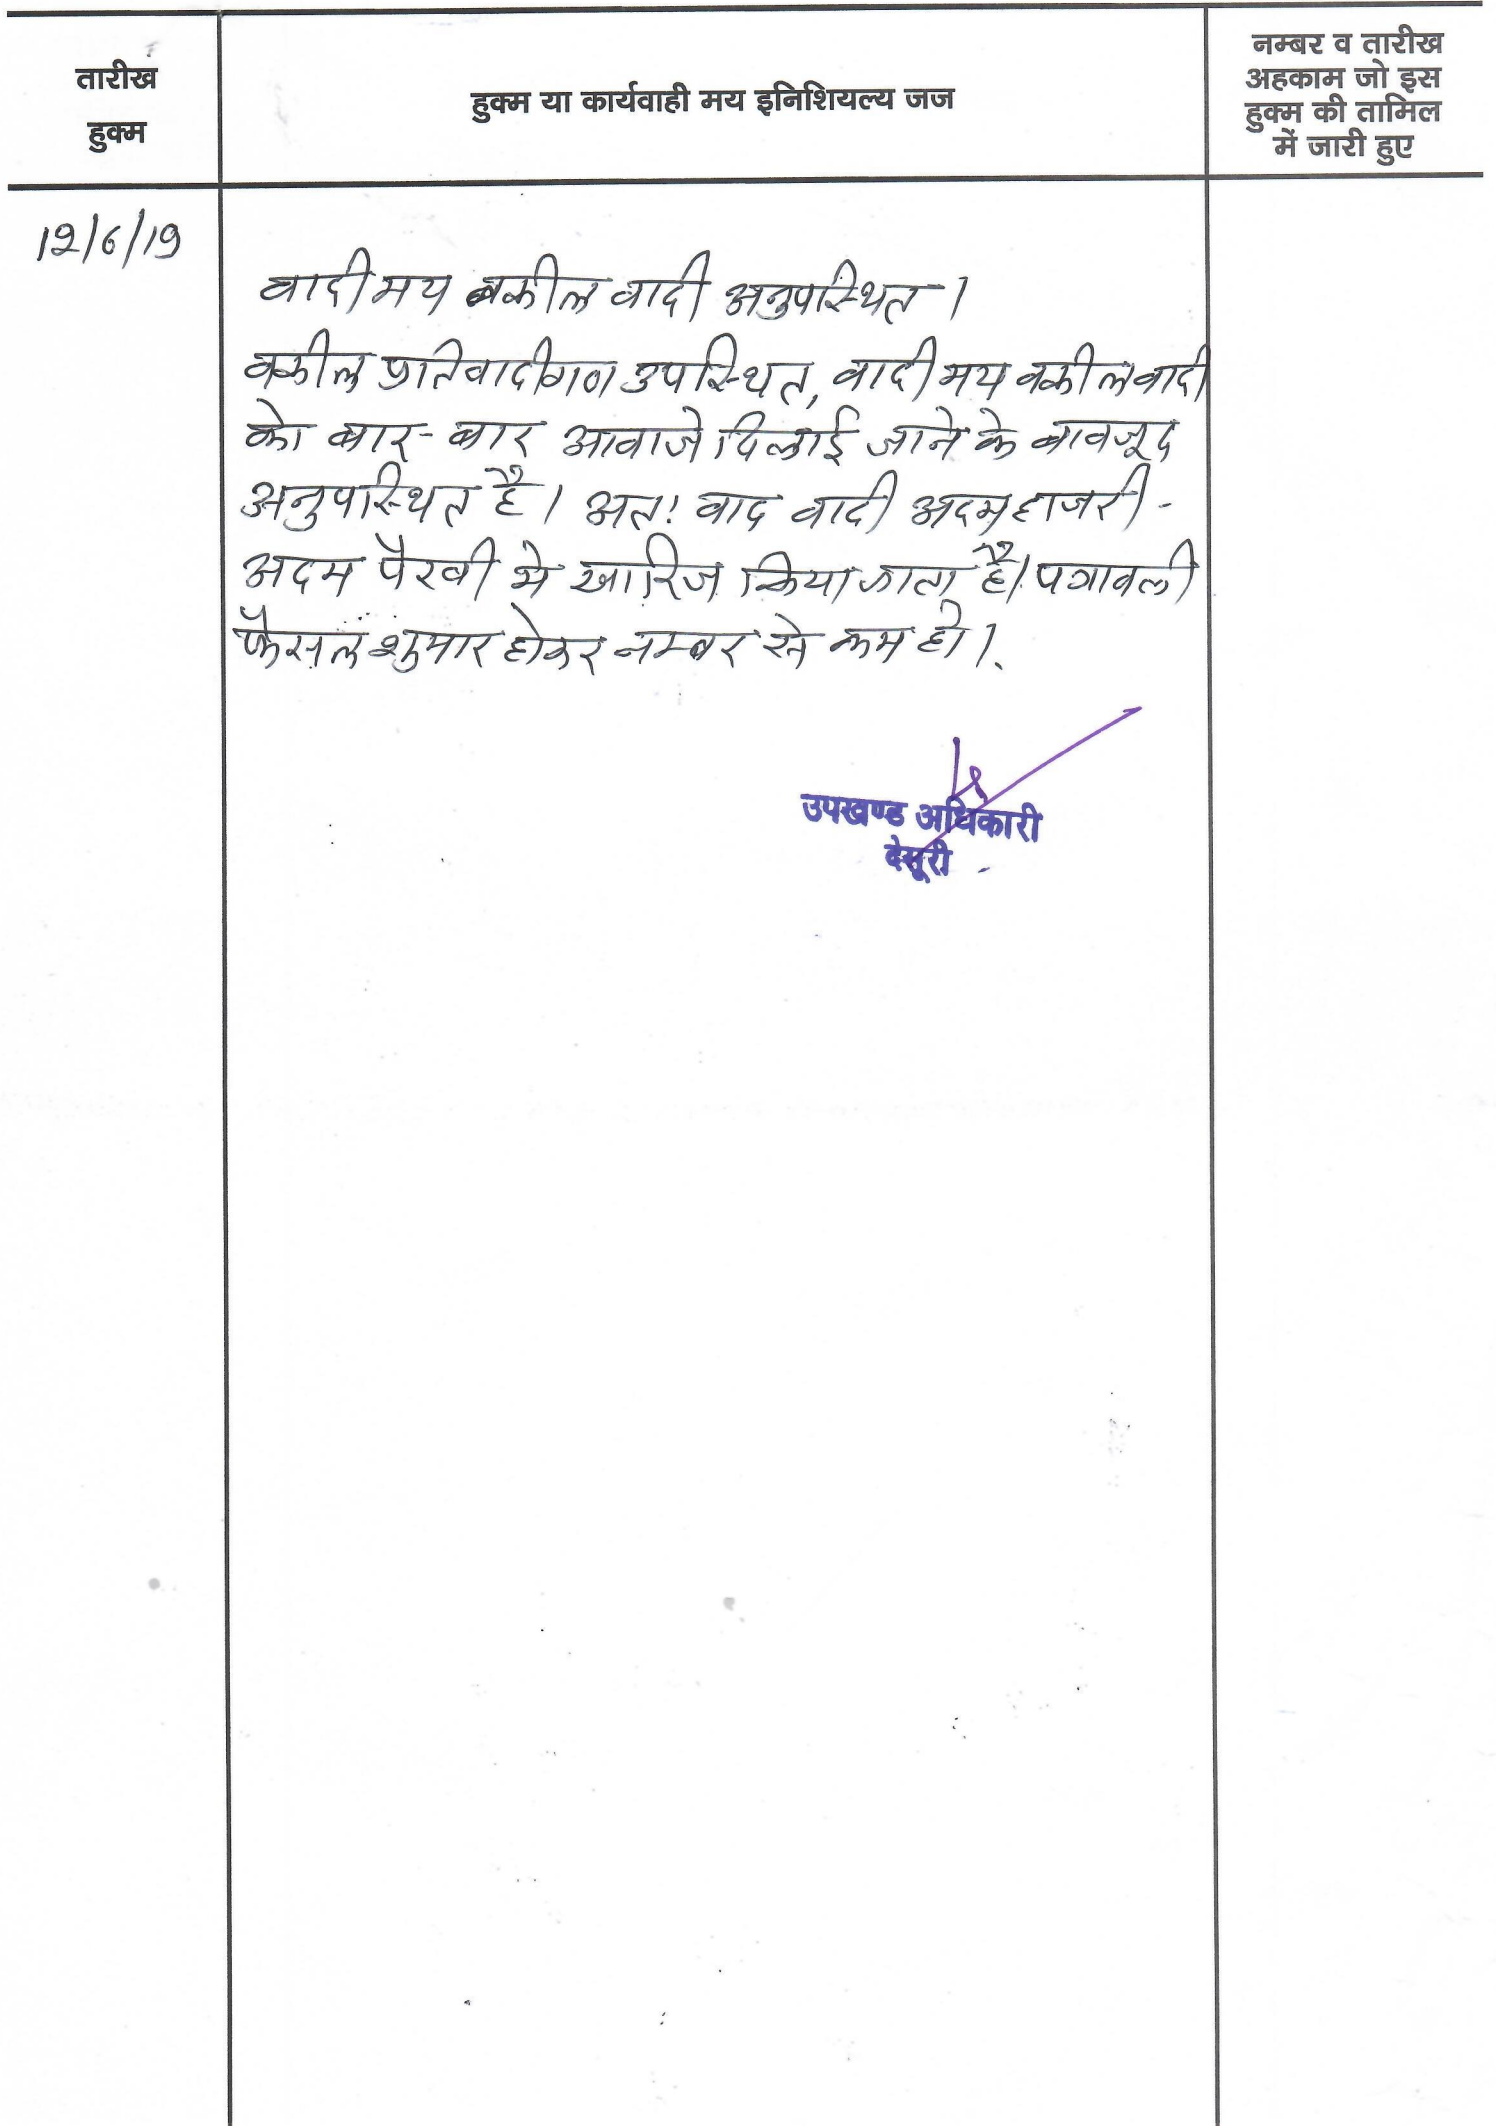 तारीख
हुक्म
हुक्म या कार्यवाही मय इनिशियल्य जज
नम्बर व तारीख
अहकाम जो इस
हुक्म की तामिल
में जारी हुए
12/6/19
वादी मय वकील वादी अनुपस्थित।
वकील प्रतिवादीगण उपस्थित, वादी मय वकील वादी
को बार-बार आवाजे दिलाई जाने के बावजूद
अनुपस्थित है। अतः वाद वादी अदम हाजरी -
अदम पैरवी मे खारिज किया जाता है। पत्रावली
फैसल शुमार होकर नम्बर से कम हो।
उपखण्ड अधिकारी
देसूरी